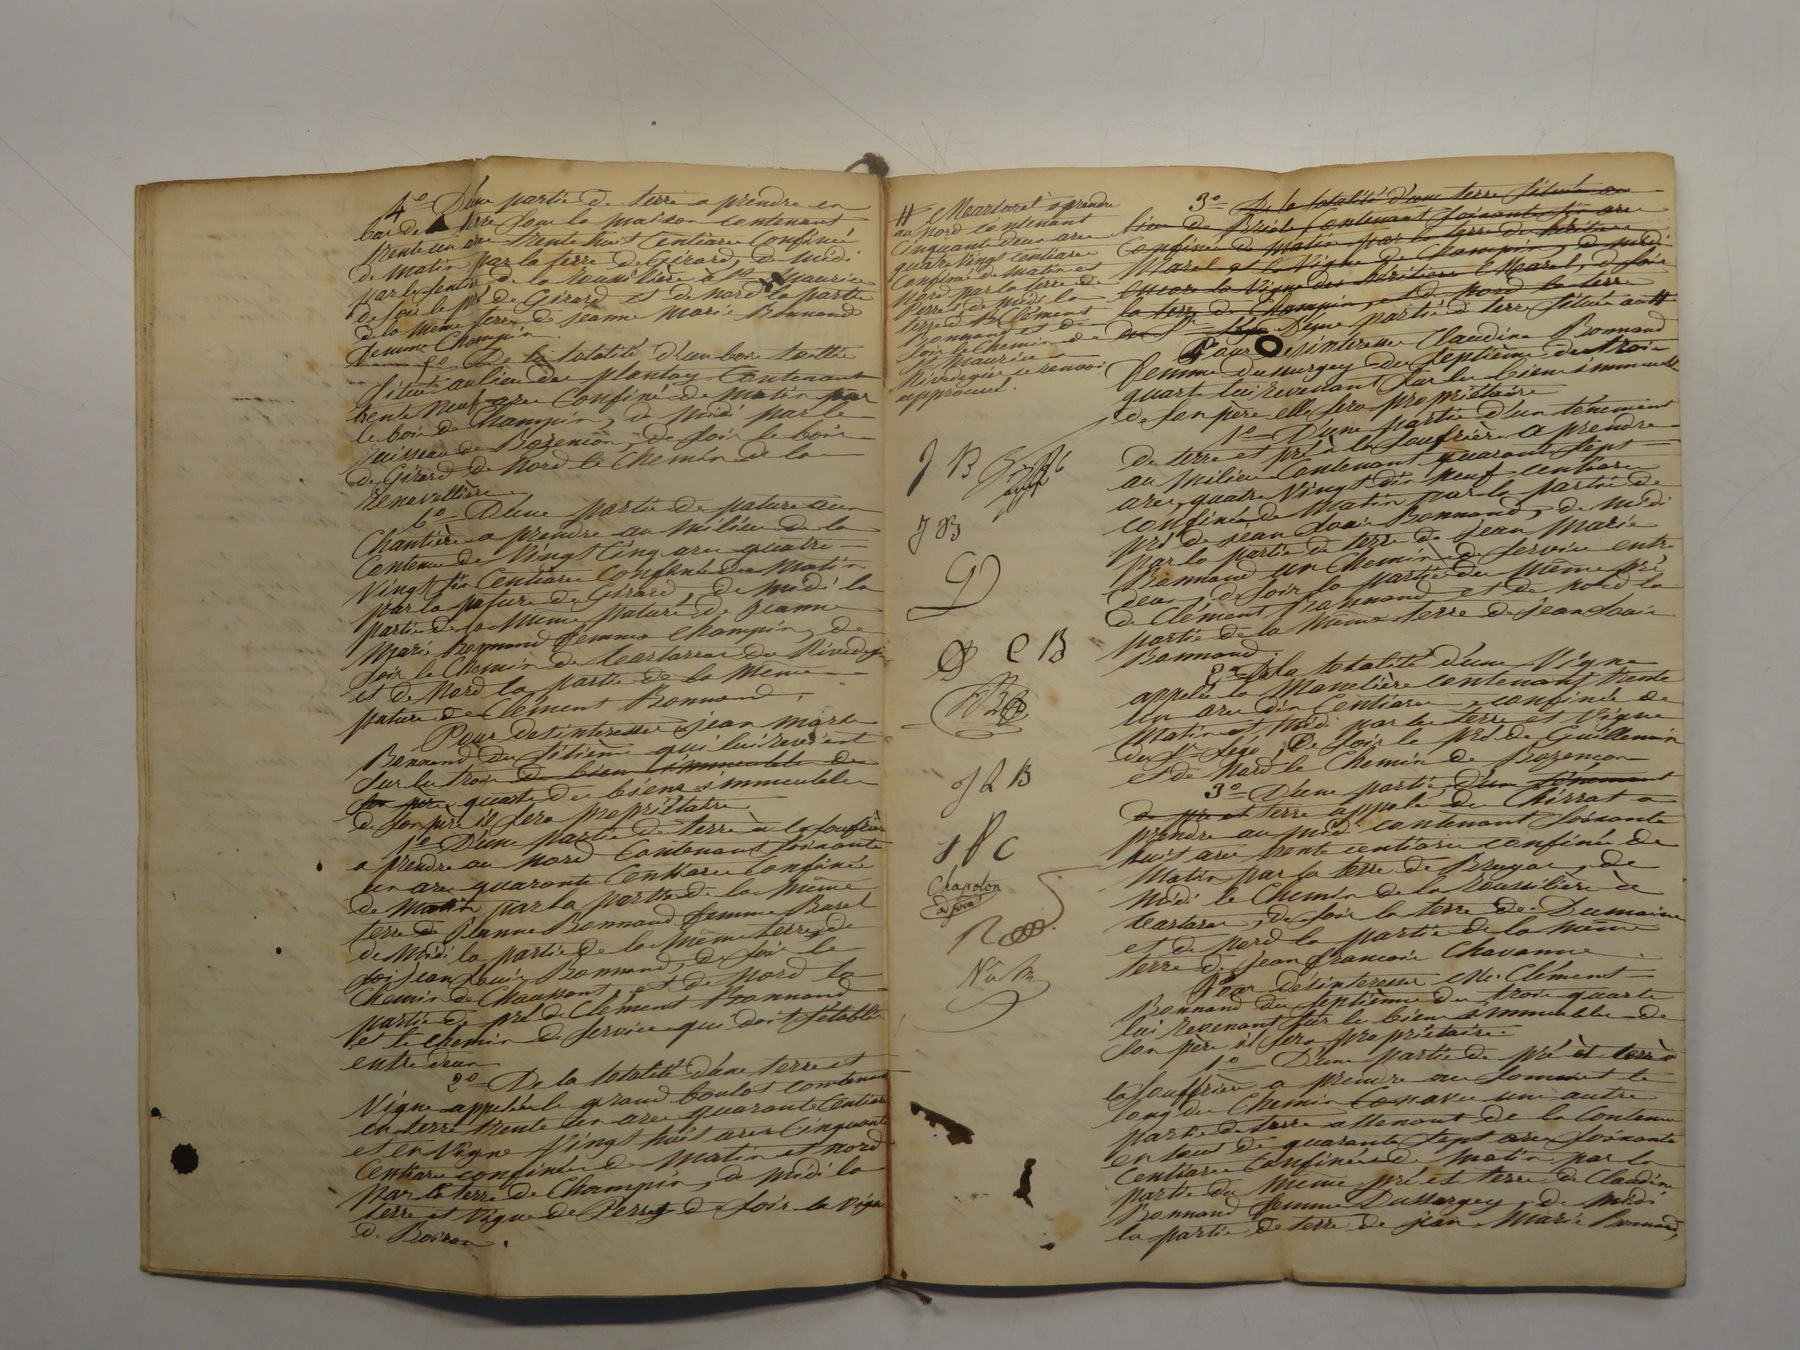 4o D'une partie de terre a prendre en
bas de la terre sous la maison contenant
trente un are trente huit centiare confinée
de matin par la terre de Girard, de midi
par le sentier de la Roussilière à St Maurice
de soir le pré de Girard et de nord la partie
de la même terre de jeanne Marie Bonnand
femme Champin.
5o De la totalité d'un bois taillis
situé au lieu de plantay contenant
trente neuf are confiné de matin par
le bois de Champin, de midi par le
ruisseau de Bozencon, de soir le bois
de Girard de nord le chemin de la
Renavallière
6o D'une partie de pature aux
Chantière a prendre au milieu de la
contenue de Vingt cinq are quatre
Vingt six centiare confinée de Matin
par la pature de Girard, de midi la
partie de la même pature de jeanne
Marie Bonnand femme Champin, de
soir le Chemin de tartaras de Rivedegier
et de nord la partie de la même
pature de Clément Bonnand.
Pour desinteresser jean marie
Bonnand du sitième qui lui revient
sur les trois de bien immeuble de
son père quarts des biens immeubles
de son père il sera propriétaire
1o D'une partie de terre a la souffrière
a prendre au nord contenant soixante
un are quarante centiare confinée
de matin par la partie de la même
terre de jeanne Bonnand femme Barel
de Midi la partie de la même terre de
soi jean Louis Bonnand, de soir le
Chemin de Chaussant, et de nord la
partie de pré de Clément Bonnand
et le chemin de service qui doit s'établir
entre deux
2o De la totalité d'une terre et
Vigne appelée le grand boulot contenant
en terre trente un are quarante centiare
et en Vigne Vingt huit are cinquante
centiare confinée de matin et nord
par la terre de Champin, de midi la
terre et Vigne de Perret de soir la Vigne
de Boiron.
# Martoret a prendre
au nord contenant
cinquante deux are
quatre vingt centiare
confiné de matin et
nord par la terre de
Perret, de midi la
terre d Clément
Bonnand et de
soir le chemin de
St Maurice a
Rivedegier ce renvoi
approuvé.
J B
J B
C B
J L B
J P C
Chapoton
3o De la totalité d'une terre située au
lieu de Briole contenant soixante six are
confinée de matin par la terre des héritiers
Marel et la Vigne de Champin, de midi
encore la Vigne des héritiers Marel, de soir
la terre de Champin, et de nord la terre
du Sr Ségo D'une partie de terre située au #
Pour desinteresser Claudine Bonnand
femme Dussurgey du septième des trois
quart lui revenant sur les biens immeuble
de son père elle sera propriétaire
1o D'une partie d'un tènement
de terre et pré à la Souffrière a prendre
au milieu contenant quarante sept
are, quatre Vingt dix neuf centiare
confinée de matin par la partie de
pré de jean Louis Bonnand, de midi
par la partie de terre de jean Marie
Bonnand un Chemin de service entre
deux, de soir la partie du même pré
de Clément Bonnand et de nord la
partie de la même terre de jean Louis
Bonnand.
2o De la totalité d'une Vigne
appelée la Manelière contenant trente
un are dix centiare, confinée de
matin et midi par les terre et Vigne
du Sr Ségo, de soir le pré de Guillemin
et de nord le Chemin de Bozencon
3o D'une partie d'un tènement
de pré et terre appelé du Chirrat a
prendre au midi contenant soixante
huit are trente centiare confinée de
Matin par la terre de Bruyas, de
midi le Chemin de la roussilière à
tartaras, de soir la terre de Dumaine
et de nord la partie de la même
terre de jean francois Chavanne
Pour désinteresser Clément
Bonnand du septième des trois quarts
lui revenant sur les biens immeubles de
son père il sera propriétaire
1o D'une partie de pré et terre a
la Souffrière a prendre au sommet le
long du Chemin avec une autre
partie de terre attenant de la contenue
en tout de quarante sept are soixante
centiare confinée de matin par la
partie du même pré et terre de Claudine
Bonnand femme Dussurgey, de midi
la partie de terre de jean Marie Bonnand,